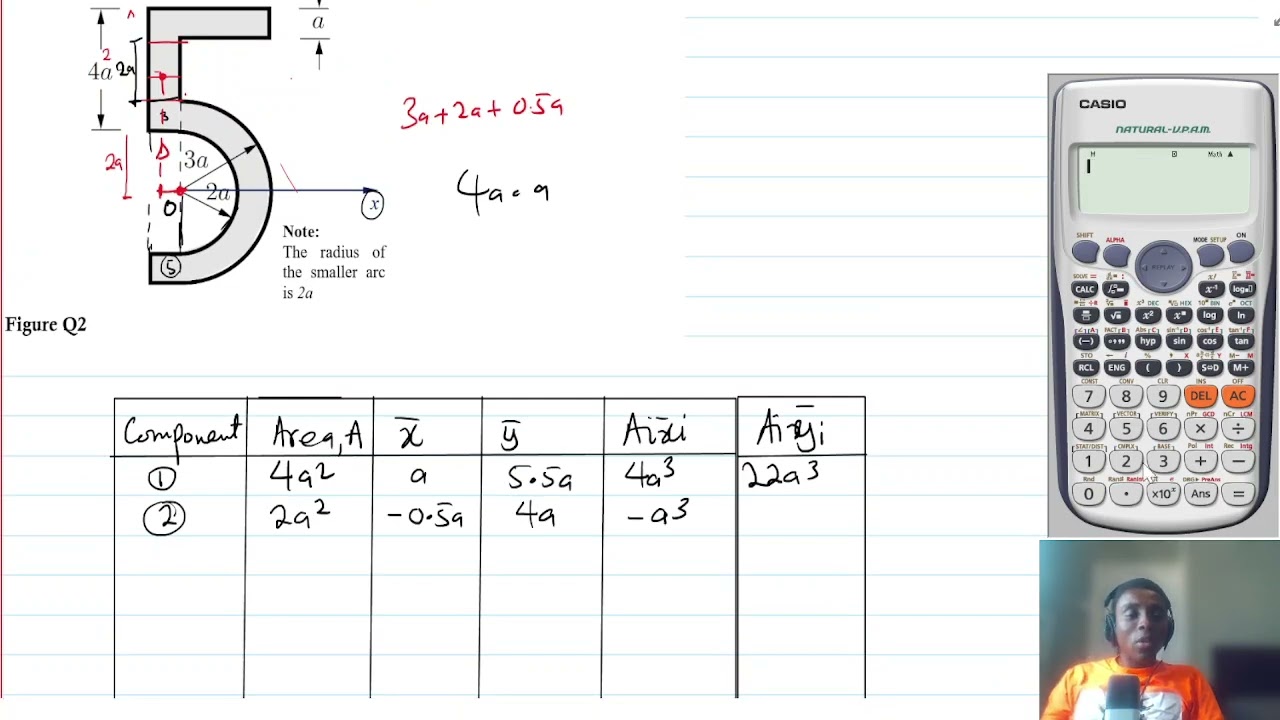 a
2
4a
2a
3
2a
3a
2a
0
x
5
3a+2a+0.5a
4a · a
Note:
The radius of
the smaller arc
is 2a
Figure Q2
Component Area, A x̄ ȳ Aix̄i Aiȳi
1 4a² a 5.5a 4a³ 22a³
2 2a² -0.5a 4a -a³
CASIO
NATURAL-V.P.A.M.
Math ▲
SHIFT ALPHA REPLAY MODE SETUP ON
CALC x⁻¹ log
x² log ln
(−) hyp sin cos tan
RCL ENG ( ) S⇔D M+
7 8 9 DEL AC
4 5 6 × ÷
1 2 3 + −
0 · ×10ˣ Ans =